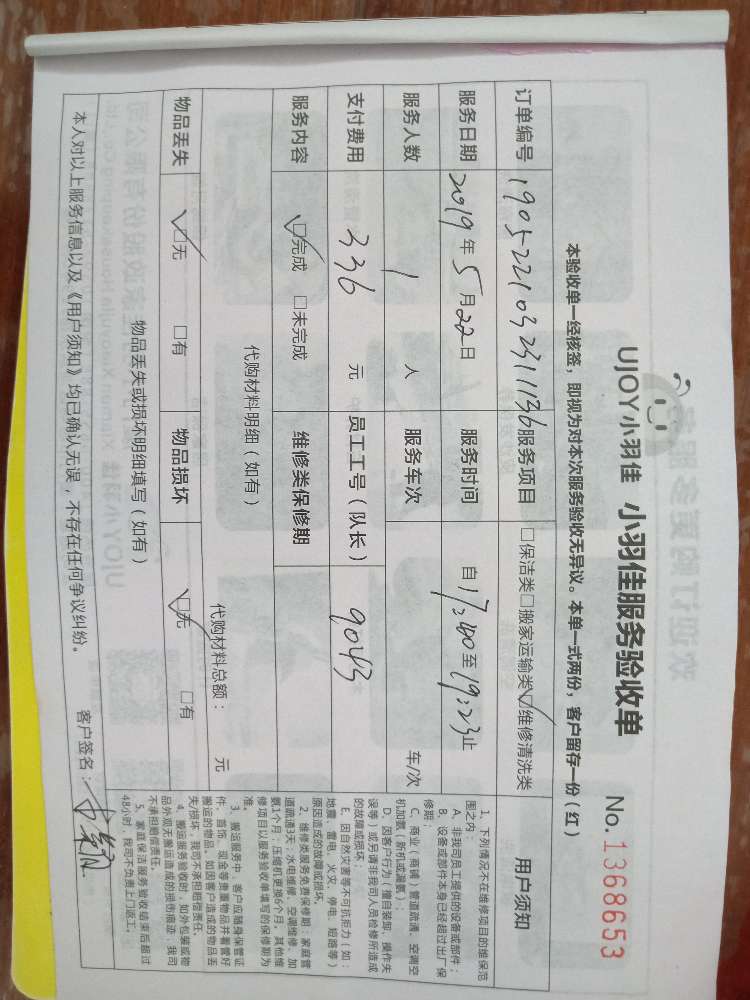 UJOY小羽佳 小羽佳服务验收单
No. 1368653
本验收单一经核签，即视为对本次服务验收无异议。本单一式两份，客户留存一份（红）
订单编号 190522103231136 服务项目 □保洁类□搬家运输类☑维修清洗类
服务日期 2019年5月22日 服务时间 自17:40至19:23止
服务人数 1 人 服务车次 车/次
支付费用 336 元 员工工号（队长） 9043
服务内容 ☑完成 □未完成 维修类保修期
代购材料明细（如有） 代购材料总额： 元
物品丢失 ☑无 □有 物品损坏 ☑无 □有
物品丢失或损坏明细填写（如有）
本人对以上服务信息以及《用户须知》均已确认无误，不存在任何争议纠纷。 客户签名：
用户须知
1、下列情况不在维修项目的维保范
围之内：
A、非我司员工提供的设备或部件；
B、设备或部件本身已经超过出厂保
修期；
C、商业（商铺）管道疏通、空调空
机加氨（新机或漏氨）；
D、因客户行为（擅自装卸、操作失
误等）或另请非我司人员检修所造成
的故障或损坏；
E、因自然灾害等不可抗拒力（如：
地震、雷电、火灾、停电、短路等）
原因造成的故障或损坏。
2、维修类服务免费保修期：家庭管
道疏通3天；水电维修、空调维修、加
氨1个月；压缩机更换6个月，其他维
修项目以服务验收单填写的保修期为
准。
3、搬运服务中，客户应随身保管证
件、首饰、现金等贵重物品并看管好
搬运的物品，如因客户造成的物品丢
失/损坏，我司不承担赔偿责任。
4、搬运服务验收时，如外包装或物
品外观无搬运造成的损伤痕迹，我司
不承担赔偿责任。
5、家庭保洁服务验收结束后超过
48小时，我司不负责上门返工。